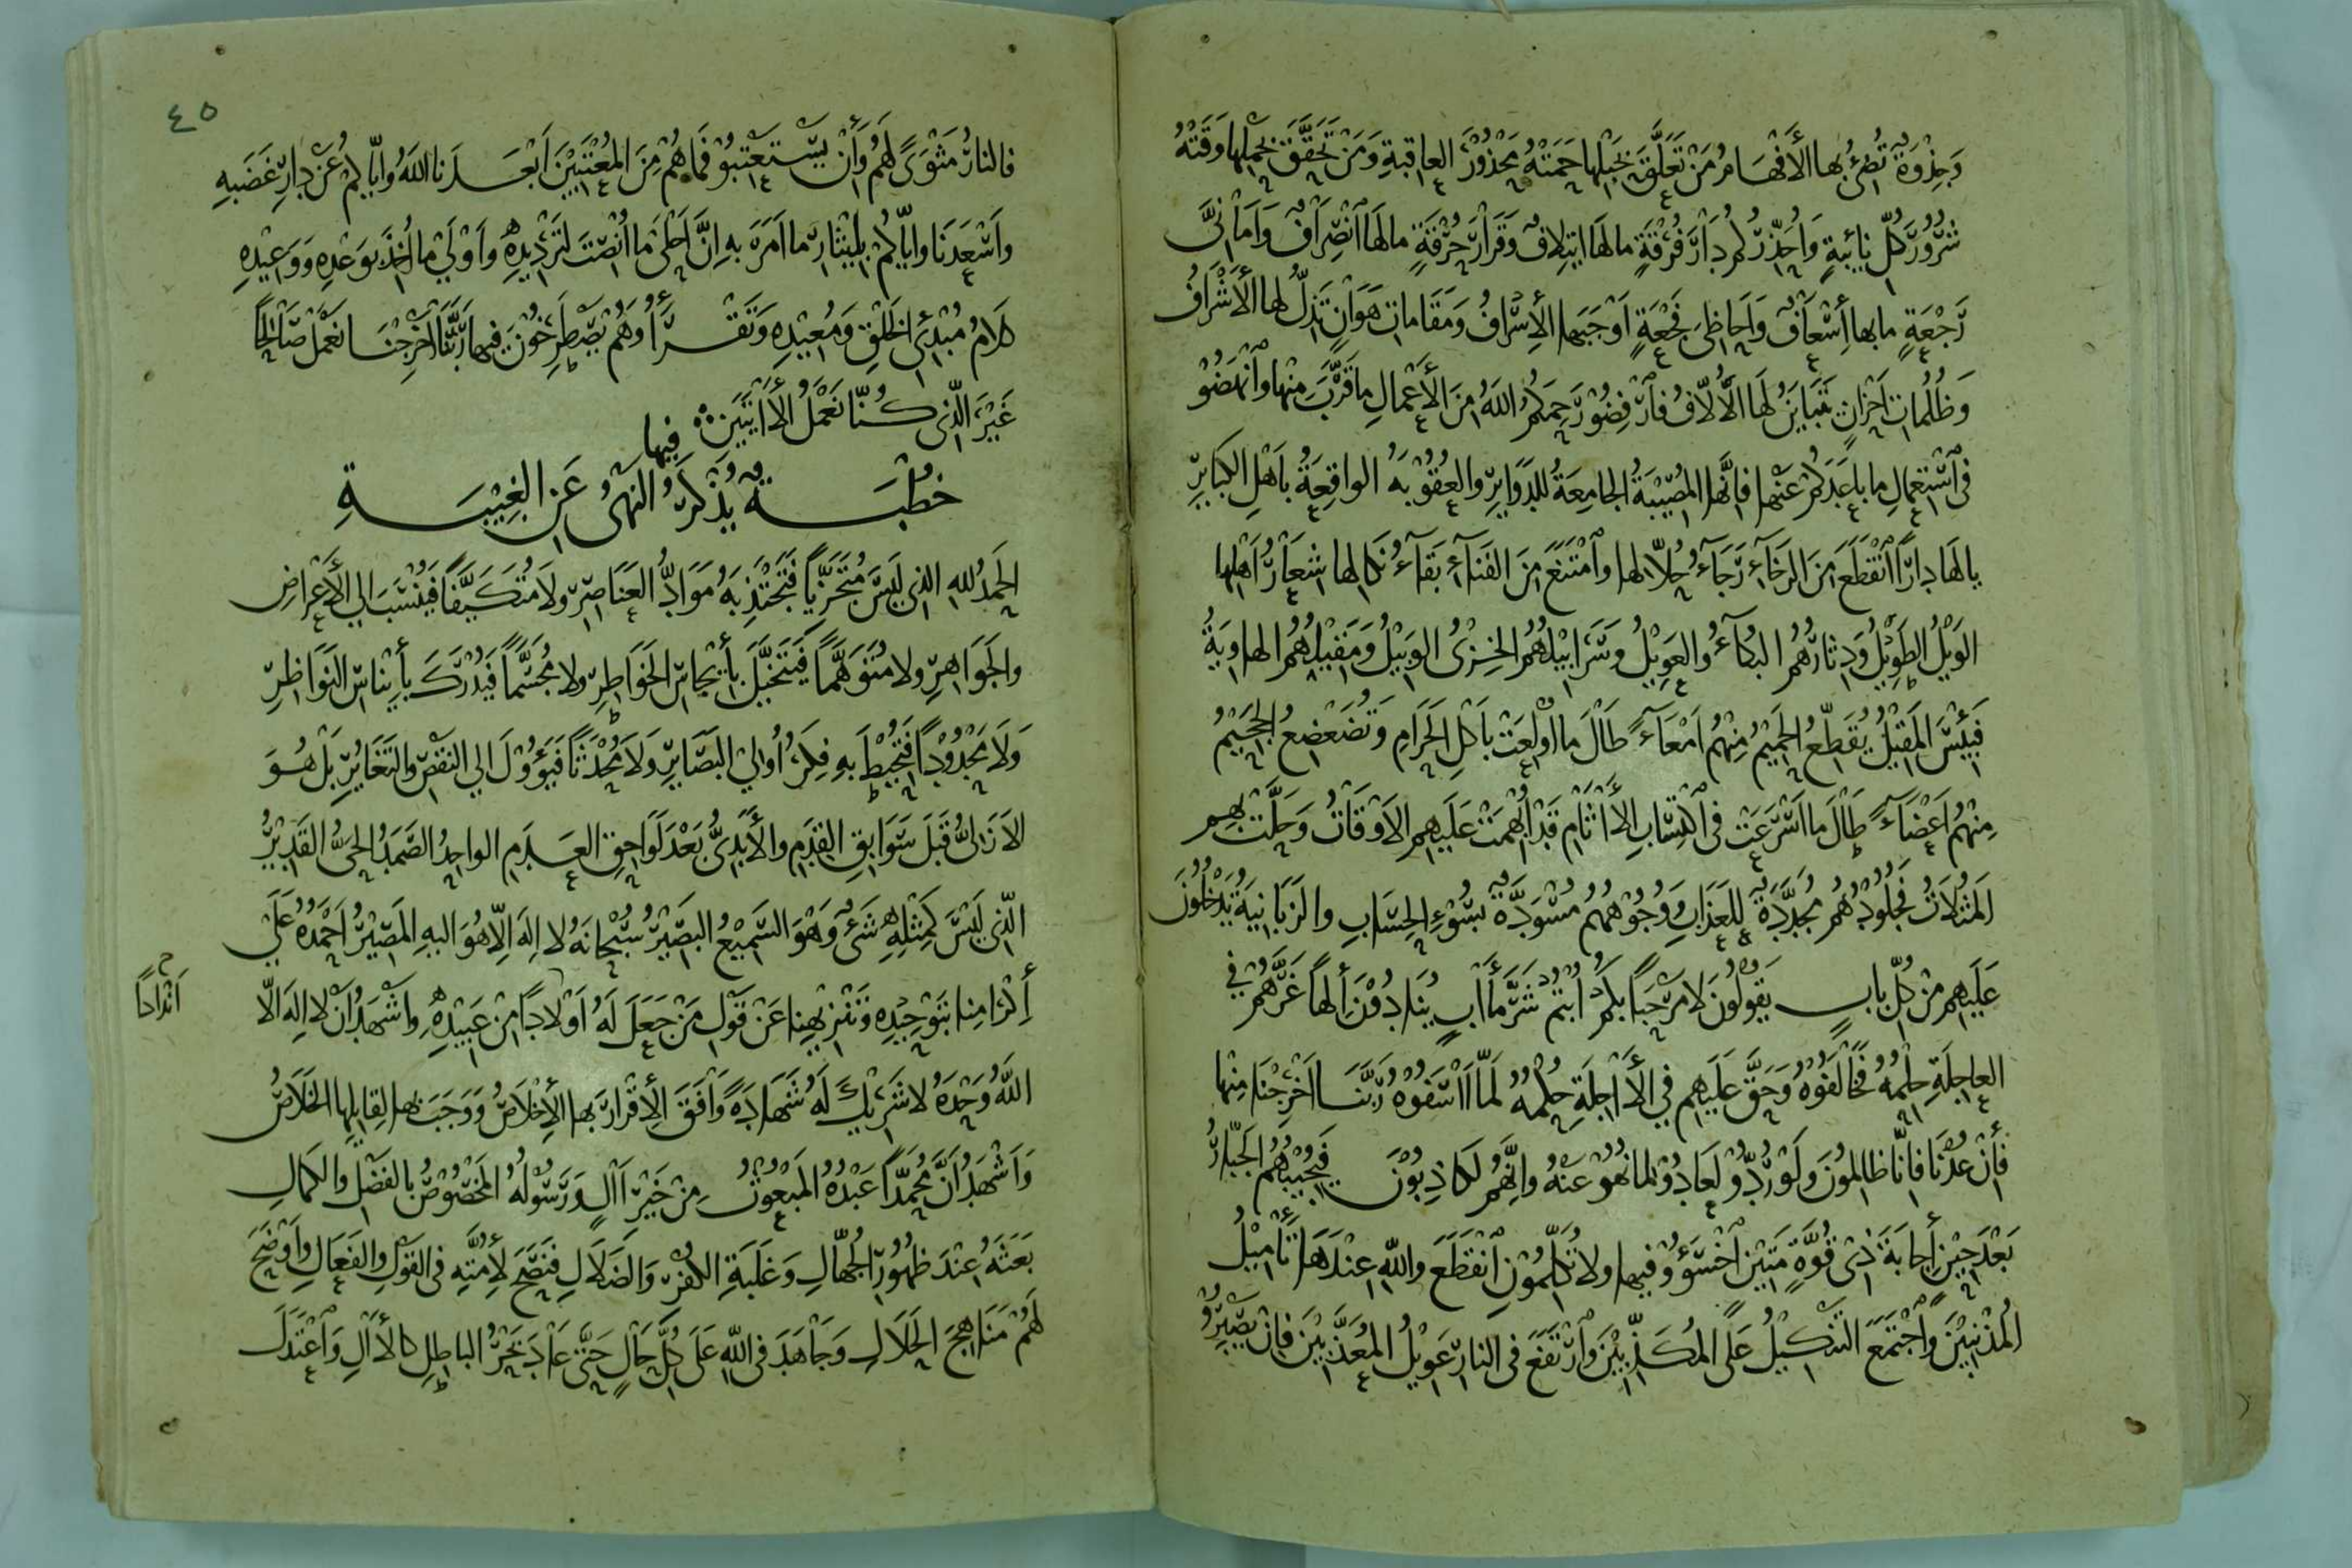 وَجِذْوَةٌ تُضِئُ بها الأَفْهَامُ مَنْ تَعَلَّقَ بِحَبْلِها حَمَتْهُ مَحْذُوْرَ العاقبةِ وَمَنْ تَحَقَّقَ بِحَمْلِها وَقَتْهُ
شُرُوْرَ كُلِّ نائبةٍ وَاُحَذِّرُكُم دَارَ فُرْقَةٍ مالَها ايتِلافٌ وَقَرَارَ حُرْقَةٍ مالَها اَنْصِرَافٌ وَاَمَانِىَّ
رَجْعَةٍ مابها اِسْعَافٌ وَاَحاظِىَ فَجْعَةٍ اَوْجَبَها الأِسْرَافُ وَمَقَامات هَوَانٍ تَذِلُّ لها الأَشْرَافُ
وَظُلُمات اَحْزَانٍ تَتَبايَنُ لَهَا الأُلَّافُ فارْفِضُوْ رَحِمَكُمُ اللهُ مِنَ الأَعْمَالِ ما قَرَّبَ مِنْها وَاَنْهَضُوْ
فى اَسْتِعْمالِ ما باعَدَكُمْ عَنْها فاِنَّها المُصِيْبَةُ الجامِعَةُ للدَّوَايِرِ والعُقُوْبَةُ الواقِعَةُ بأَهْلِ الكبايرِ
يالَهَا دارًا اَنْقَطَعَ مِنَ الرَخَآءِ رَجَآءُ حُلّالِها وَاَمْتَنَعَ مِنَ الفَنَآءِ بَقَآءُ نَكالِها شِعَارُ اَهْلِها
الوَيْلُ الطَوِيْلُ وَدِثارُهُمُ البُكآءُ والعَوِيْلُ وَسَرَابِيْلُهُمُ الخِزْىُ الوَبِيْلُ وَمَقِيْلُهُمُ الهاوِيَةُ
فَبِئْسَ المَقِيْلُ يُقَطِّعُ الحَمِيْمُ مِنْهُم اَمْعَآءً طَالَ ما اُوْلِعَتْ بأَكْلِ الحَرَامِ وَتُضَعْضِعُ الجَحِيْمُ
مِنْهُم اَعْضَآءً طالَ ما اَسْرَعَتْ فى اَكْتِسَابِ الأَاثَامِ قَدْ اُبْهِمَتْ عَلَيهِم الاَوْقَاتُ وَحَلَّتْ بِهِم
المَثُلَاتُ فَجُلُودُهُم مُجَدَّدَةٌ لِلعَذَابِ وَوُجُوْهُهُم مُسْوَدَّةٌ بسُوْءِ الحِسَابِ والزَبَانِيَةُ يَدْخُلُونَ
عَلَيهِم مِنْ كُلِّ بابٍ يَقُوْلُونَ لا مَرْحَبًا بِكُم اُبْتُم شَرَّ مَأَابٍ يُنَادُوْنَ اِلٰهًا غَرَّهُم فى
العاجِلَةِ حِلْمُهُ فَخَالَفُوْهُ وَحَقَّ عَلَيهِم فى الأَاجِلَةِ حُكْمُهُ لَمَّا اَاسَفُوْهُ رَبَّنَا اَخْرِجْنَا مِنْها
فَإِنْ عُدْنَا فاِنَّا ظالِمُوْنَ وَلَوْ رُدُّوْ لَعَادُوْ لِمَا نُهُوْ عَنْهُ وإِنَّهُم لَكاذِبُوْنَ فَيُجِيْبُهُمُ الجَبَّارُ
بَعْدَ حِيْنٍ أِجابَةَ ذِىْ قُوَّةٍ مَتِيْنٍ اَخْسَؤُوْ فِيها ولا تُكَلِّمُوْنِ اَنْقَطَعَ واللهِ عِنْدَهَا تَأْمِيْلُ
المُذْنِبِيْنَ وَاَجْتَمَعَ التَنْكِيْلُ عَلَى المُكَذِّبِيْنَ وَاَرْتَفَعَ فى النارِ عَوِيْلُ المُعَذَّبِيْنَ فإِنْ يَصْبِرُوْ
٤٥
فالنارُ مَثْوَىً لَهُم وَأِنْ يَسْتَعْتِبُوْ فَما هُمْ مِنَ المُعْتَبِيْنَ اَبْعَدَنا اللهُ وإِيّاكُمْ عَنْ دارِ غَضَبِهِ
وَاَسْعَدَنَا وايّاكُمْ بِامْتِثارِ ما اَمَرَ بهِ اِنَّ اَحْلَى ما اُنْصِتَ لتَرْدِيْدِهِ وَاَوْلَى ما اُخِذَ بوَعْدِهِ وَوَعِيْدِهِ
كَلامُ مُبْدِئِ الخَلْقِ وَمُعِيْدِهِ وَتَقْرَأُ وَهُمْ يَصْطَرِخُوْنَ فيها رَبَّنَا اَخْرِجْنَا نَعْمَلْ صَالِحًا
غَيْرَ الَّذِى كُنَّا نَعْمَلُ الأَايَتَيْنِ
خطْبَةٌ يُذْكَرُ فيها النَهْىُ عَنِ الغِيْبَةِ
الحَمْدُ للهِ الذى لَيْسَ مُتَحَيِّزًا فَتَجْتَذِبَهُ مَوَادُّ العَنَاصِرِ ولا مُتَكَيِّفًا فَيُنْسَبَ الى الأَعْرَاضِ
والجَوَاهِرِ ولا مُتَوَهَّمًا فَيُتَخَيَّلَ بأِيْجاسِ الخَوَاطِرِ ولا مُجَسَّمًا فَيُدْرَكَ بأِيْناسِ النَوَاظِرِ
وَلَا مَحْدُوْدًا فَتُحِيْطَ بهِ فِكَرُ اُولِى البَصَايِرِ وَلَا مُحْدَثًا فَيَؤُوْلَ الى النَقْصِ والتَغَايُرِ بَلْ هُوَ
الاَزَلِىُّ قَبْلَ سَوَابِقِ القِدَمِ والأَبَدِىُّ بَعْدَ لَوَاحِقِ العَدَمِ الواحِدُ الصَمَدُ الحَىُّ القَدِيْرُ
الَّذِى لَيْسَ كَمِثْلِهِ شَىْءٌ وَهْوَ السَمِيْعُ البَصِيْرُ سُبْحَانَهُ لا اِلَهَ اِلّا هُوَ اليهِ المَصِيْرُ اَحْمَدُهُ عَلَى
أِكْرَامِنا بتَوْحِيْدِهِ وَتَنْزِيْهِنا عَنْ قَوْلِ مَنْ جَعَلَ لَهُ اَوْلادًا مِنْ عَبِيْدِهِ وَاَشْهَدُ اَنْ لا اِلَهَ الّا
اَنْدَادًا
اللهُ وَحْدَهُ لا شَرِيْكَ لَهُ شَهَادَةً وَاَفَقَ الأِقْرَارَ بها الأِخْلَاصُ وَوَجَبَ بها لِقائِلِها الخَلَاصُ
وَاَشْهَدُ اَنَّ مُحَمَّدًا عَبْدُهُ المَبْعُوْثُ مِنْ خَيْرِ اَالٍ وَرَسُوْلُهُ المَخْصُوْصُ بالفَضْلِ والكَمالِ
بَعَثَهُ عِنْدَ ظُهُوْرِ الجُهَّالِ وَغَلَبَةِ الكُفْرِ وَالضَلَالِ فَنَصَحَ لأُمَّتِهِ فى القَوْلِ والفَعَالِ وَاَوْضَحَ
لَهُمْ مَنَاهِجَ الحَلَالِ وَجَاهَدَ فى اللهِ عَلَى كُلِّ حَالٍ حَتَّى عَادَ بَحْرُ الباطِلِ كالأَالِ وَاَعْتَدَلَ